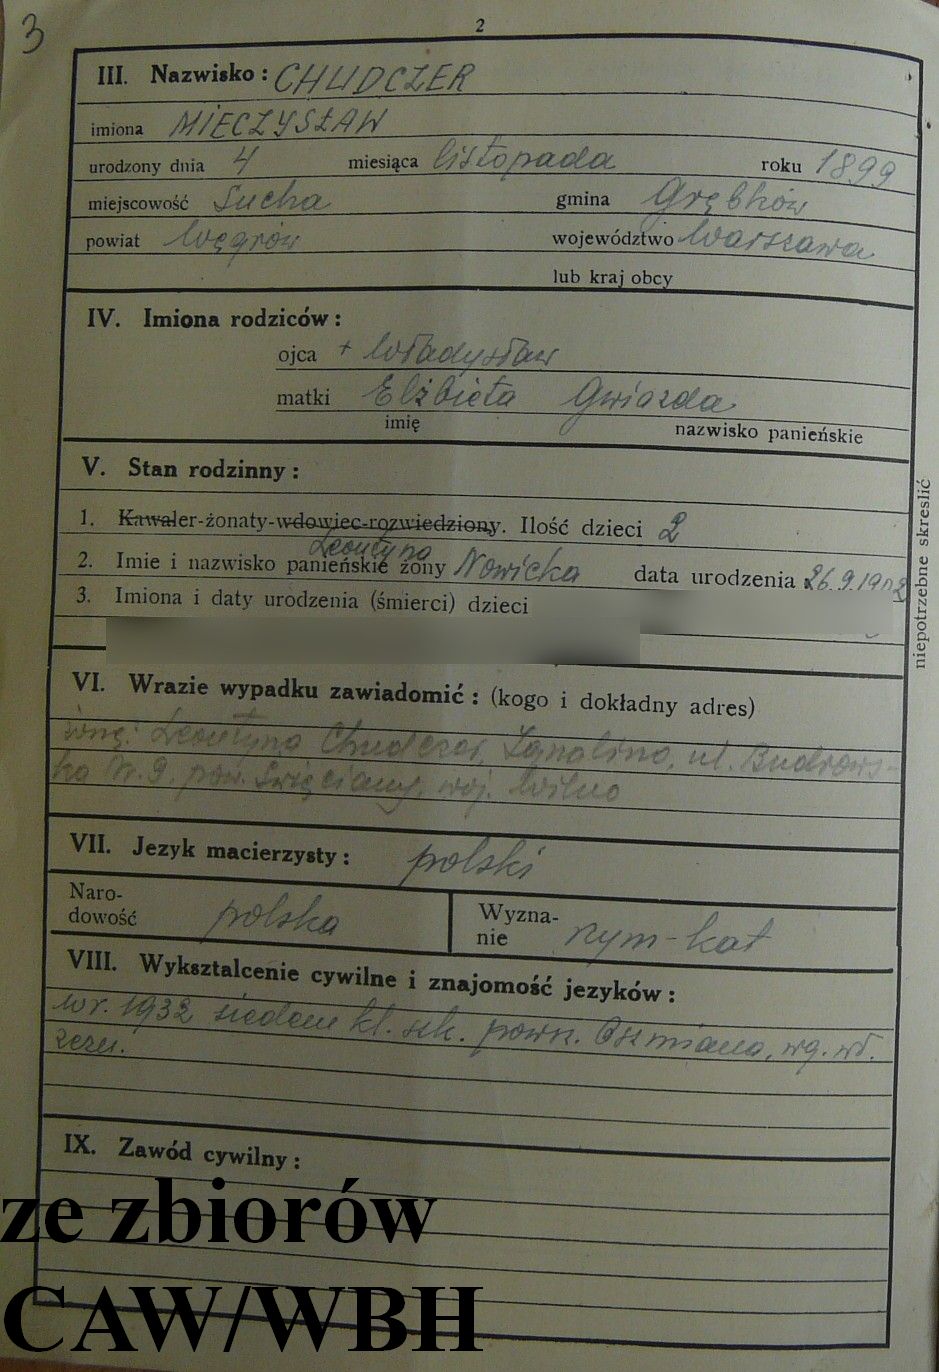 3
2
III. Nazwisko: CHUDCZER
imiona MIECZYSŁAW
urodzony dnia 4 miesiąca listopada roku 1899
miejscowość Sucha gmina Grębków
powiat Węgrów województwo Warszawa
lub kraj obcy
IV. Imiona rodziców:
ojca + Władysław
matki Elżbieta Gwiazda
imię nazwisko panieńskie
V. Stan rodzinny:
1. Kawaler-żonaty-wdowiec-rozwiedziony. Ilość dzieci 2
Leontyna
2. Imie i nazwisko panieńskie żony Nowicka data urodzenia 26.9.1902
3. Imiona i daty urodzenia (śmierci) dzieci
niepotrzebne skreslić
VI. Wrazie wypadku zawiadomić: (kogo i dokładny adres)
żonę: Leontyna Chudczer, Ignalino, ul. Budrows-
ka Nr. 9. pow. Święciany, woj. Wilno
VII. Jezyk macierzysty: polski
Naro-
dowość polska
Wyzna-
nie rzym-kat
VIII. Wyksztalcenie cywilne i znajomość jezyków:
w r. 1932 siedem kl. szk. powsz. Oszmiana, wg. wł.
zezn.
IX. Zawód cywilny:
ze zbiorów
CAW/WBH